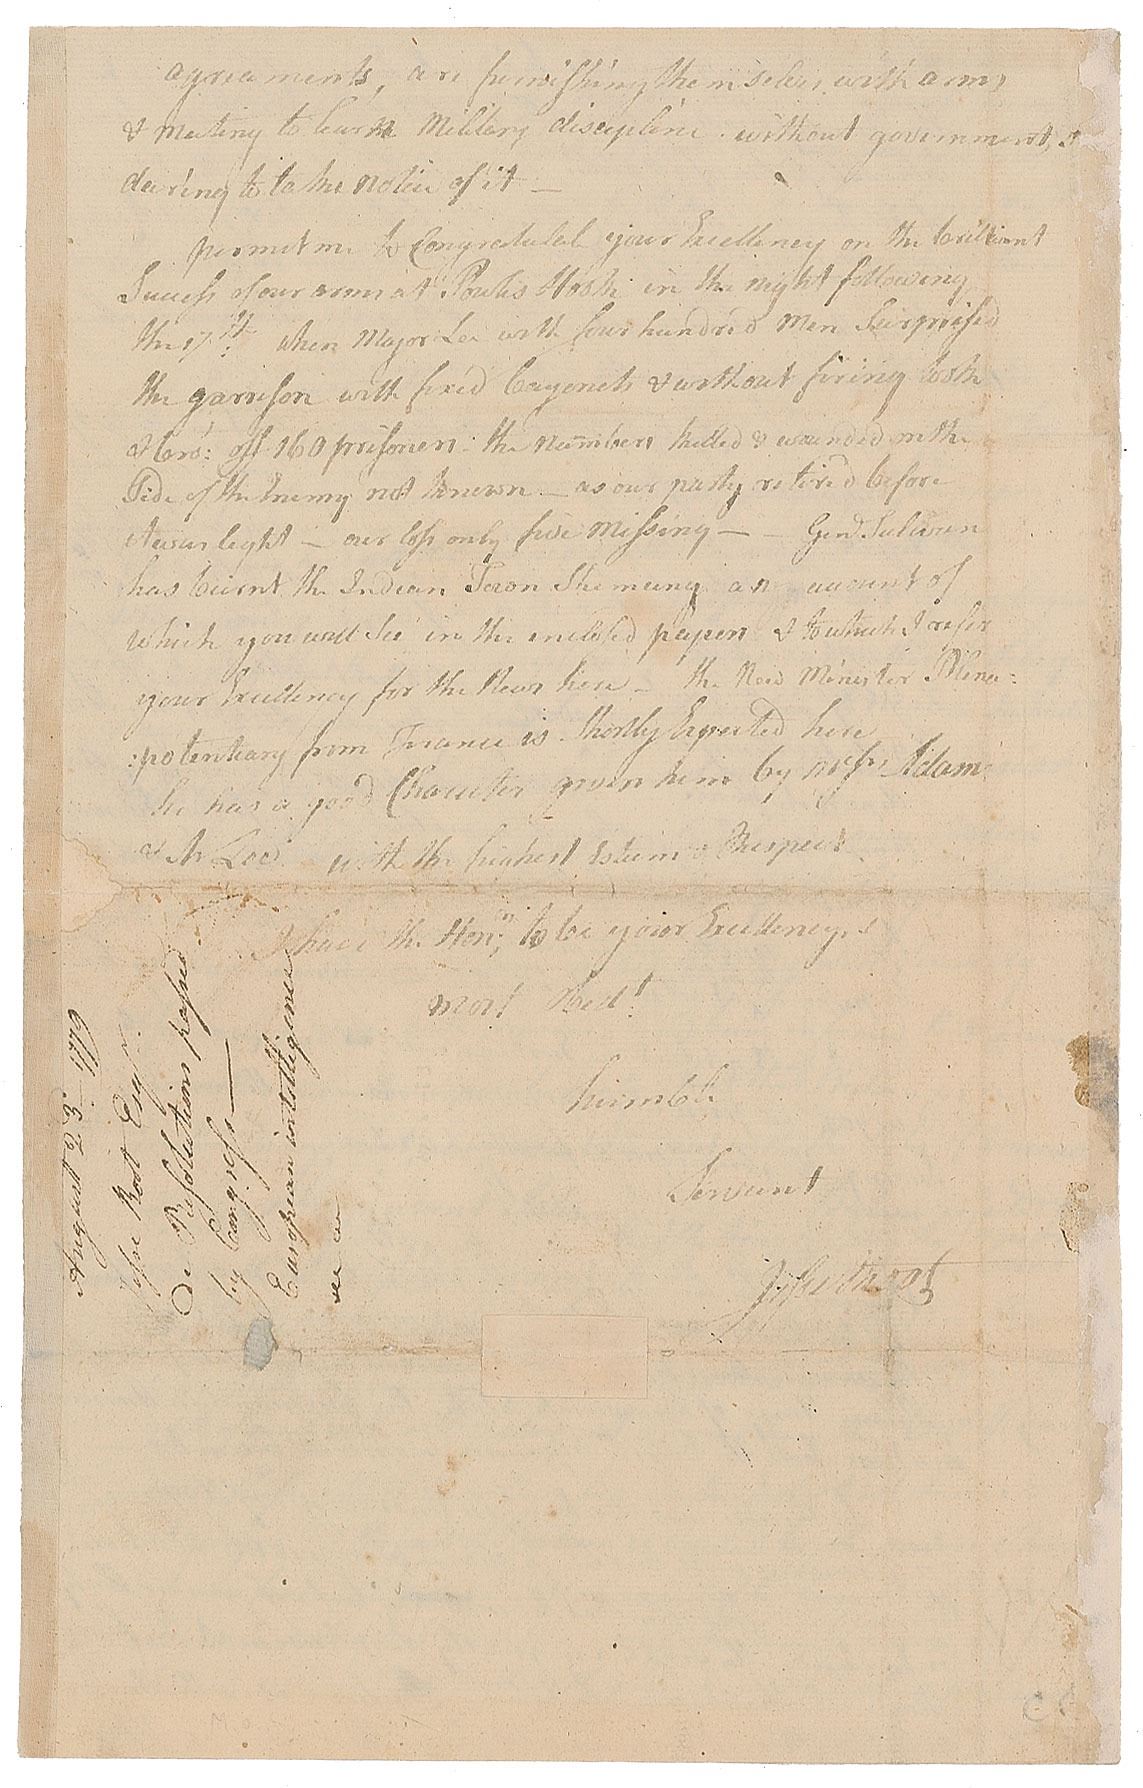 agreaments, are furnishing themselves with arms
& meeting to learn Military discepline without government,s
dareing to take notice of it —
permit me to Congratulate your Excellency on the brilliant
Success of our arms at Poulis Hook in the night following
the 17th: when Major Lee with four hundred Men Surprised
the garrison with fixed bayonets & without firing took
& bro: off 160 prisoners: the numbers killed & wounded on the
Side of the Enemy not known — as our party retired before
it was leght — our loss only five missing — Genl. Sulivan
has burnt the Indean Town Shemung an account of
which you will See in the enclosed papers & to which I refer
your Excellency for the News here — the New Minister Plene:
:potentiary from France is Shortly Expected here
he has a good Charecter given him by Messrs Adams
& A Lee. with the highest Esteem & Respect
I have the Honr. to be your Excellency,s
most Obedt.
humble
Servant
Jesse Root
August 23 1779
Jesse Root Esqr.
de Resolutions passed
by Congress —
European intelligence